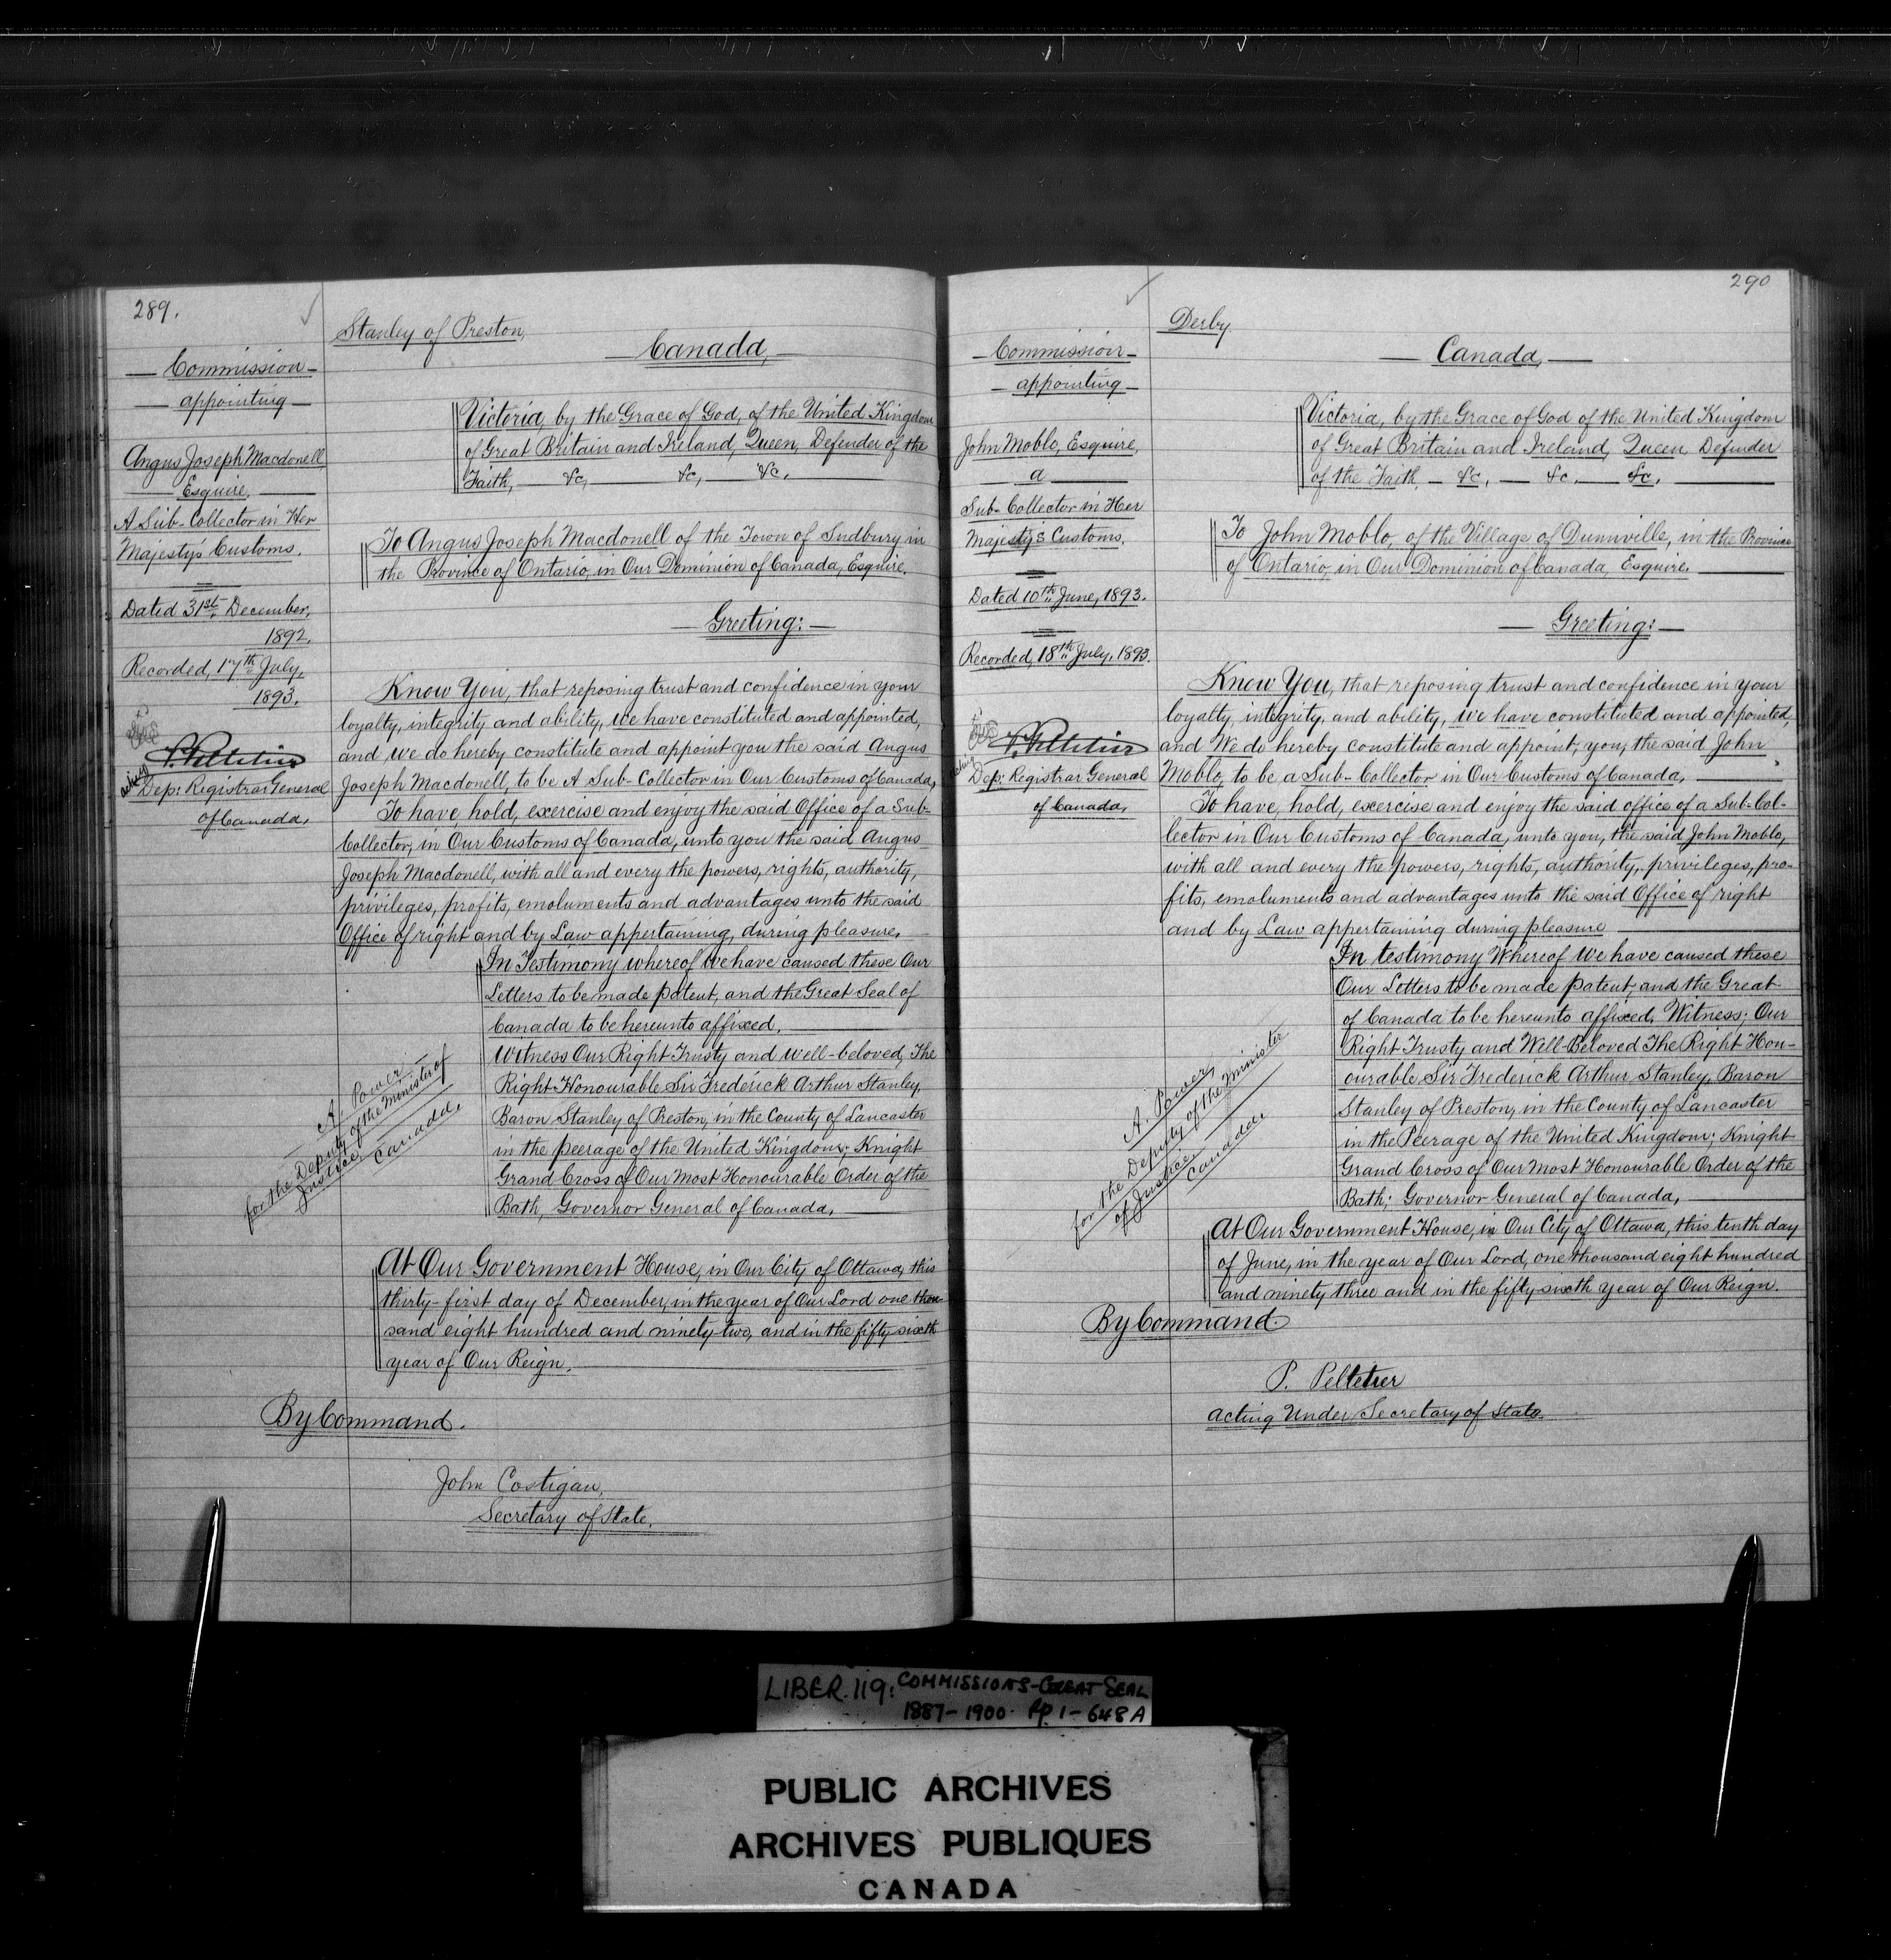 289.
Commission
appointing
Angus Joseph Macdonell
Esquire.
A Sub-Collector in Her
Majesty's Customs.
Dated 31st December,
1892.
Recorded, 17th July,
1893.
P. Pelletier
acting
Dep: Registrar General
of Canada,
Stanley of Preston,
Canada,
Victoria, by the Grace of God, of the United Kingdom
of Great Britain and Ireland, Queen, Defender of the
Faith, &c, &c, &c.
To Angus Joseph Macdonell of the Town of Sudbury in
the Province of Ontario, in Our Dominion of Canada, Esquire.
Greeting:
Know You, that reposing trust and confidence in your
loyalty, integrity and ability, We have constituted and appointed,
and We do hereby constitute and appoint you the said Angus
Joseph Macdonell, to be A Sub-Collector in Our Customs of Canada,
To have hold, exercise and enjoy the said Office of a Sub-
Collector, in Our Customs of Canada, unto you the said Angus
Joseph Macdonell, with all and every the powers, rights, authority,
privileges, profits, emoluments and advantages unto the said
Office of right and by Law appertaining, during pleasure.
In Testimony whereof We have caused these Our
Letters to be made patent, and the Great Seal of
Canada to be hereunto affixed.
Witness Our Right Trusty and well-beloved, The
Right Honourable Sir Frederick Arthur Stanley,
Baron Stanley of Preston, in the County of Lancaster
in the peerage of the United Kingdom; Knight
Grand Cross of Our Most Honourable Order of the
Bath, Governor General of Canada,
A. Power
for the Deputy of the Minister of
Justice
Canada.
At Our Government House, in Our City of Ottawa, this
thirty-first day of December, in the year of Our Lord one thou-
sand eight hundred and ninety-two, and in the fifty-sixth
year of Our Reign.
By Command.
John Costigan,
Secretary of State.
290
Commission
appointing
John Moblo, Esquire,
a
Sub-Collector in Her
Majesty's Customs.
Dated 10th June, 1893.
Recorded, 18th July, 1893.
P. Pelletier
acting
Dep: Registrar General
of Canada,
Derby.
Canada,
Victoria, by the Grace of God of the United Kingdom
of Great Britain and Ireland, Queen, Defender
of the Faith, &c, &c. &c.
To John Moblo, of the Village of Dunnville, in the Province
of Ontario, in Our Dominion of Canada, Esquire.
Greeting:
Know You, that reposing trust and confidence in your
loyalty, integrity, and ability, We have constituted and appointed,
and We do hereby constitute and appoint, you, the said John
Moblo, to be a Sub-Collector in Our Customs of Canada,
To have, hold, exercise and enjoy the said office of a Sub-Col-
lector in Our Customs of Canada, unto you, the said John Moblo,
with all and every the powers, rights, authority, privileges, pro-
fits, emoluments and advantages unto the said Office of right
and by Law appertaining during pleasure
In testimony Whereof We have caused these
Our Letters to be made patent, and the Great
of Canada to be hereunto affixed. Witness; Our
Right Trusty and Well-Beloved The Right Hon-
ourable Sir Frederick Arthur Stanley, Baron
Stanley of Preston, in the County of Lancaster
in the Peerage of the United Kingdom; Knight
Grand Cross of Our Most Honourable Order of the
Bath; Governor General of Canada,
A. Power,
for the Deputy of the Minister
of Justice
Canada.
At Our Government House, in Our City of Ottawa, this tenth day
of June, in the year of Our Lord, one thousand eight hundred
and ninety three and in the fifty-sixth year of Our Reign.
By Command.
P. Pelletier
Acting Under Secretary of State.
LIBER. 119: COMMISSIONS-GREAT SEAL
1887-1900. Pp 1-648A
PUBLIC ARCHIVES
ARCHIVES PUBLIQUES
CANADA